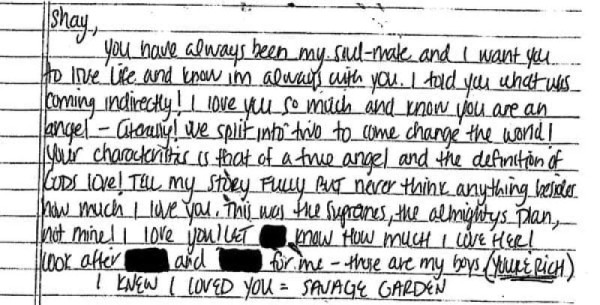 Shay,
you have always been my soul-mate and I want you
to live life and know im always with you. I told you what was
coming indirectly! I love you so much and know you are an
angel - literally! We split into two to come change the world!
Your characteristics is that of a true angel and the definition of
GODS love! TELL my story FULLY BUT never think anything besides
how much I love you. This was the supremes, the almightys plan,
not mine! I love you! LET know HOW MUCH I LOVE HER!
look after and for me - those are my boys (YOU'RE RICH)
I KNEW I LOVED YOU = SAVAGE GARDEN